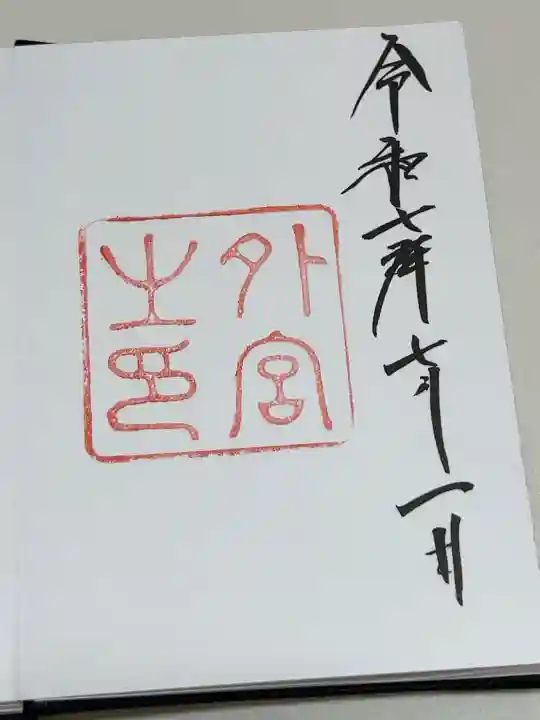 令和七年七月一日
外宮
之印